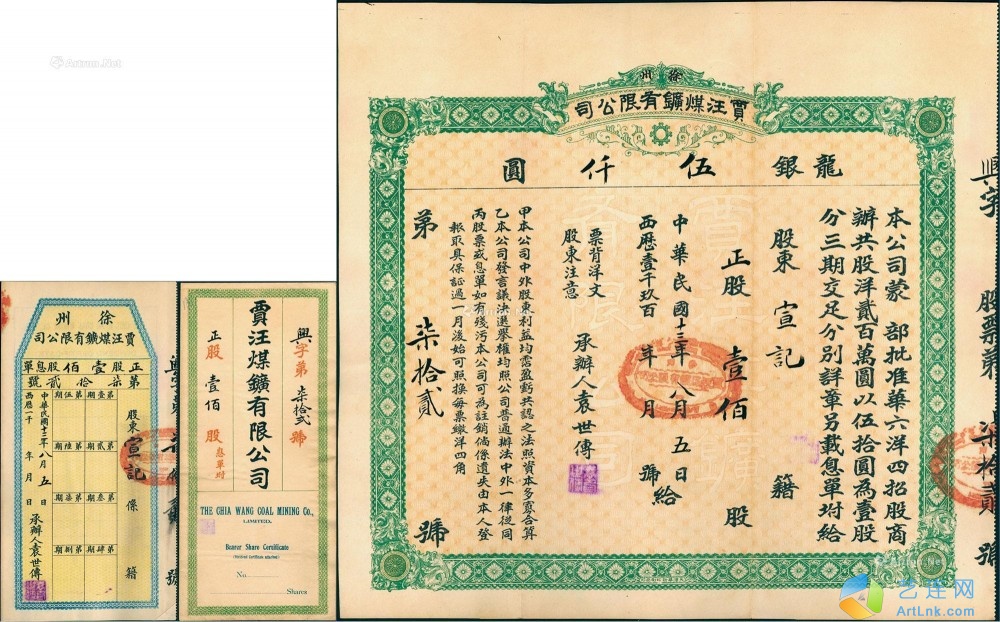 徐州
賈汪煤鑛有限公司
龍銀伍仟圓
本公司蒙 部批准華六洋四招股商
辦共股洋貳百萬圓以伍拾圓為壹股
分三期交足分別詳章另載息單坿給
股東 宣記 籍
正股 壹佰 股
中華民國十三年八月五日
西歷壹千九百 年 月 號給
票背洋文
股東注意
承辦人袁世傳
甲本公司中外股東利益均霑盈虧共認之法照資本多寡合算
乙本公司發言議決選舉權均照公司普通辦法中外一律從同
丙股票或息單如有殘污本公司可為註銷倘係遺失由本人登
報取具保証過一月後始可照換每票繳洋四角
第 柒拾貳 號
興字 股票第 柒拾貳 號
興字第 柒拾貳 號
賈汪煤鑛有限公司
正股 壹佰 股
息單坿
THE CHIA WANG COAL MINING Co.,
LIMITED.
Bearer Share Certificate
(Dividend Certificate attached)
No.
Shares
徐州
賈汪煤鑛有限公司
正股壹佰股息單
第柒拾貳號
股東 宣記 係 籍
第壹期 第伍期
第貳期 第陸期
第叁期 第柒期
第肆期 第捌期
中華民國十三年八月五日
西歷一千 年 月 日
承辦人袁世傳
Artron.Net
艺连网
ArtLnk.com